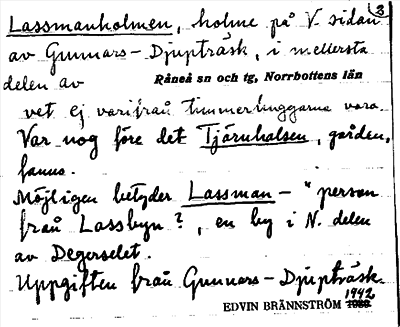 Lassmanholmen, holme på V. sidan 3
av Gunnars-Djupträsk, i mellersta
delen av Råneå sn och tg, Norrbottens län
vet ej varifrån timmerhuggarna vara.
Var nog före det Tjärnhalsen, gården,
fanns.
Möjligen betyder Lassman - "person
från Lassbyn?, en by i N. delen
av Degerselet.
Uppgiften från Gunnars-Djupträsk.
EDVIN BRÄNNSTRÖM 1942